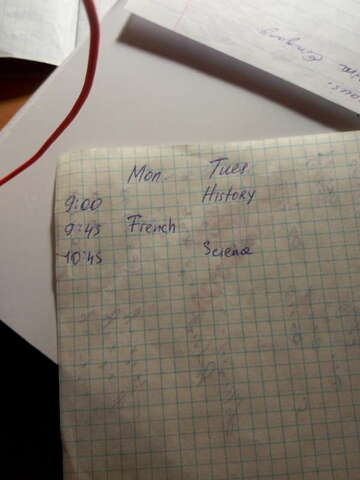 Mon Tues
9:00 History
9:45 French
10:45 Science